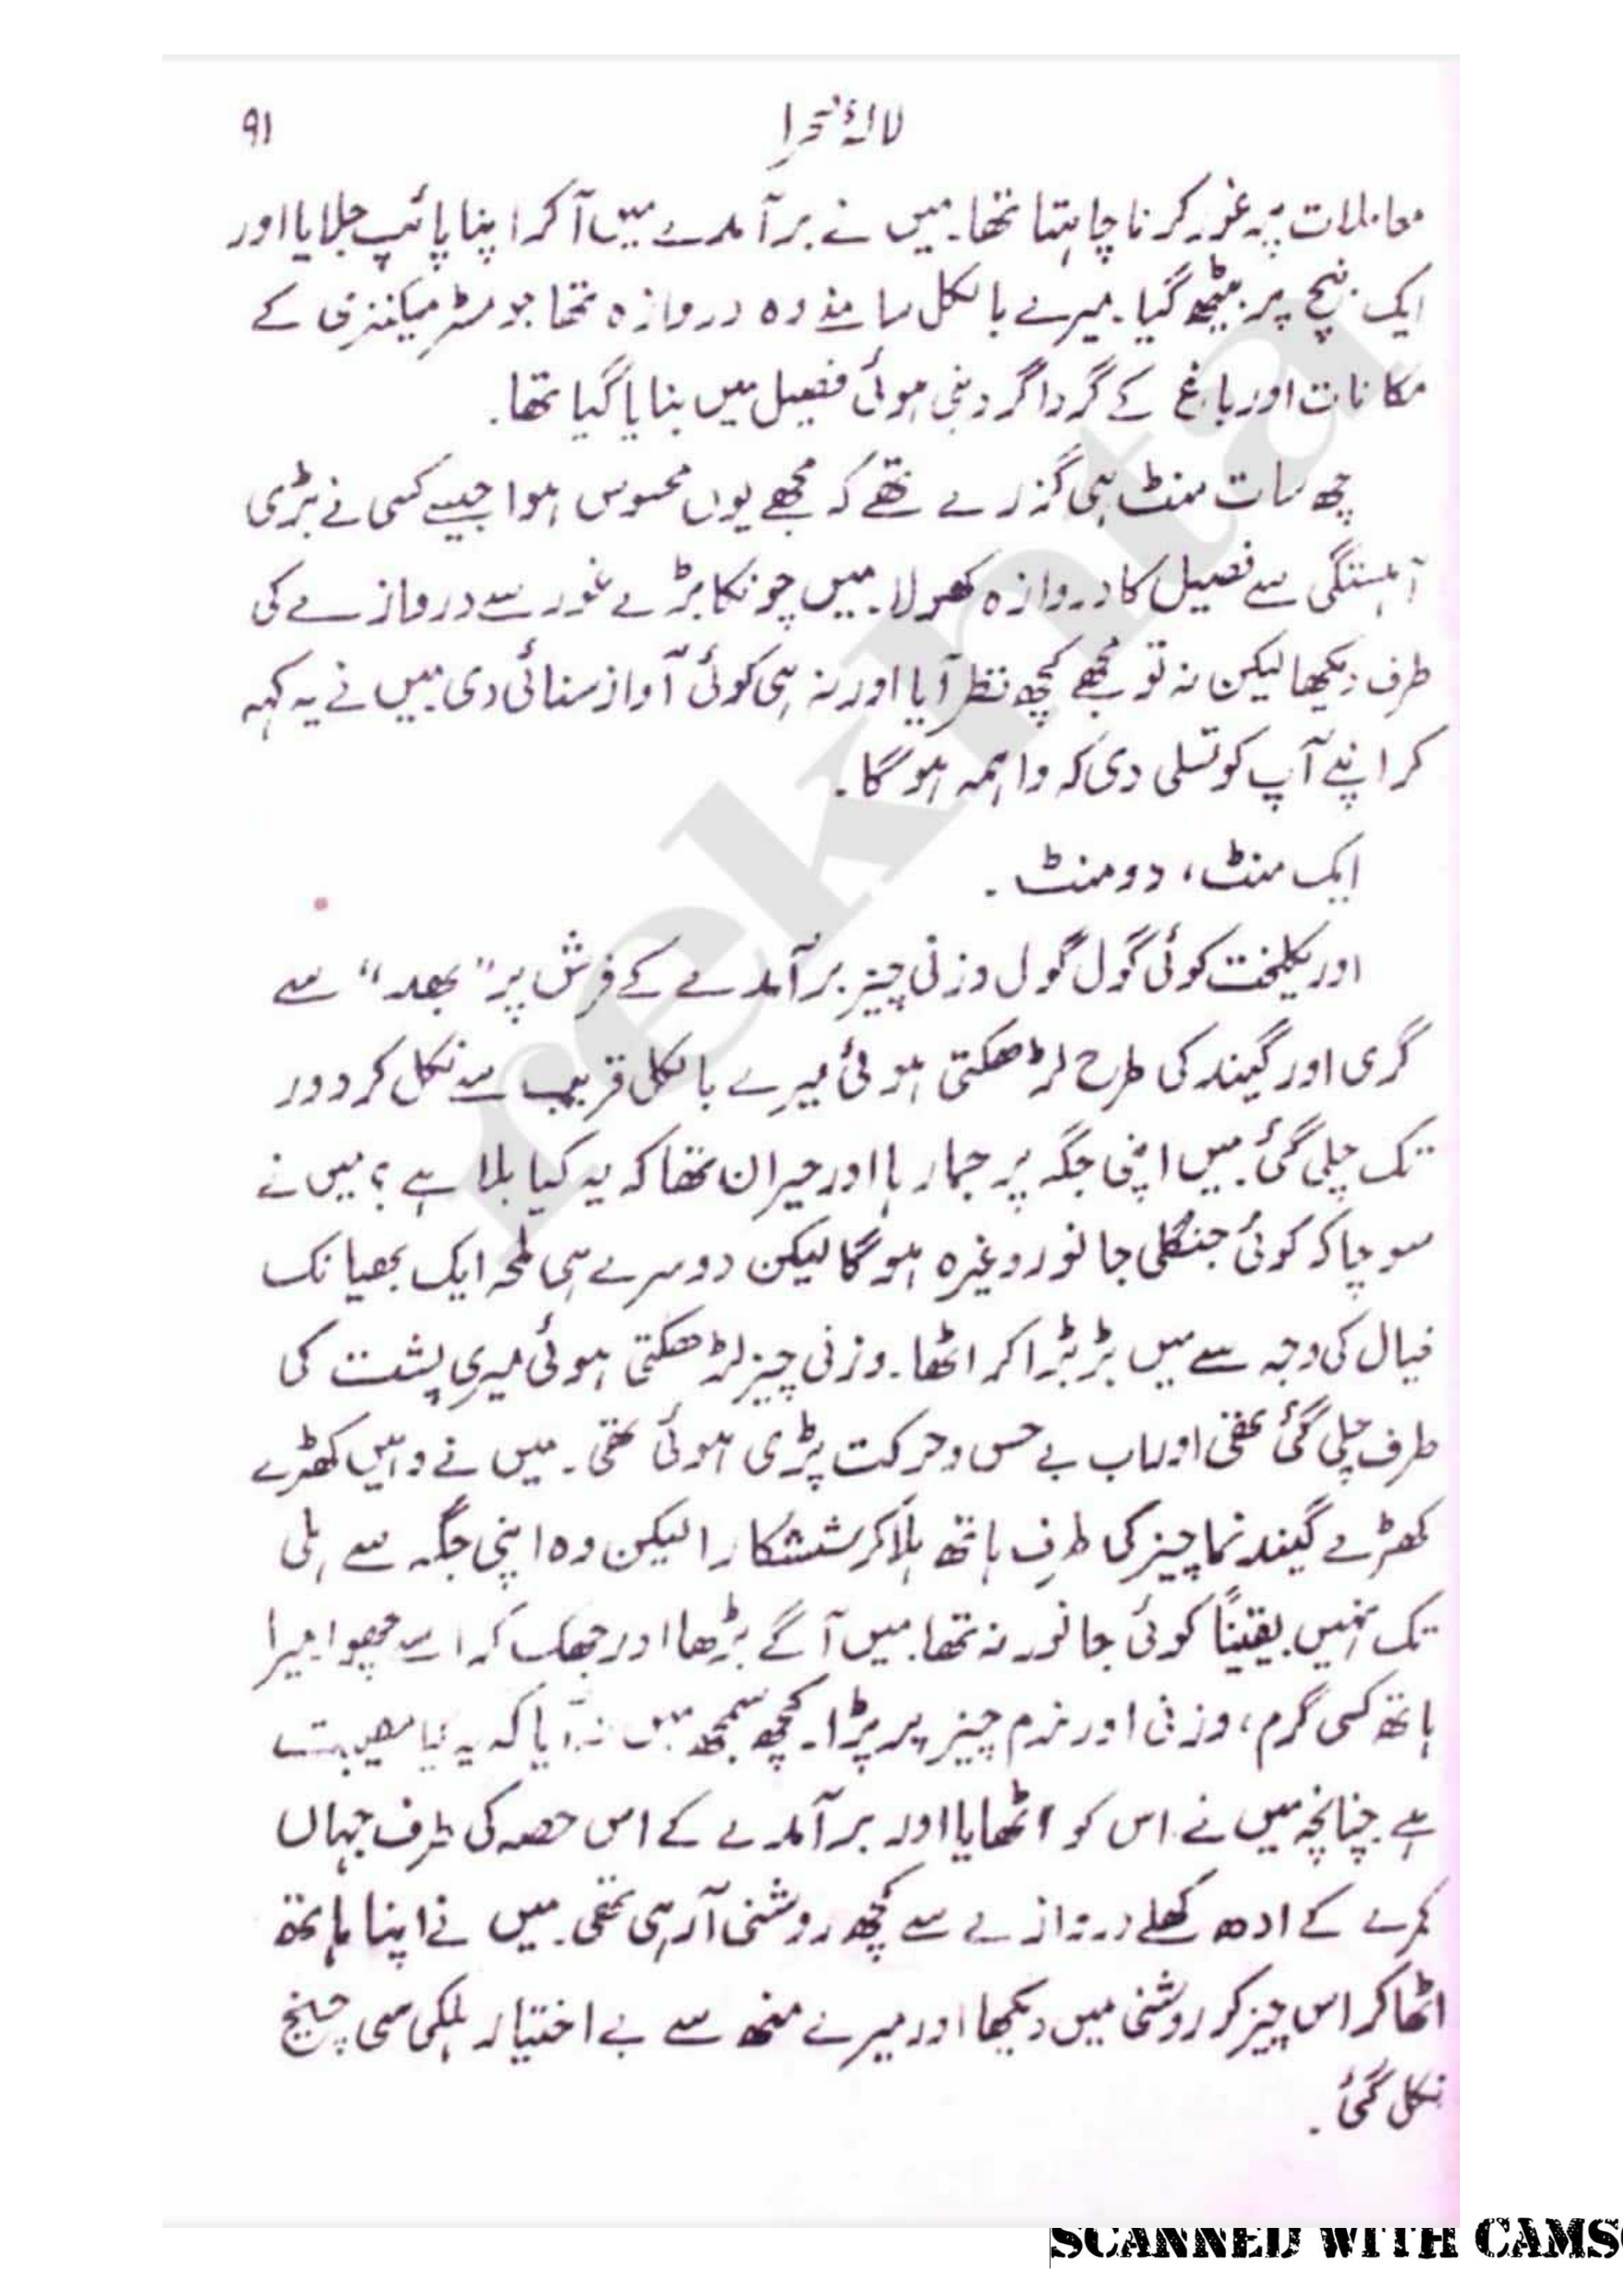 لالۂ صحرا
۹۱
معاملات پہ غور کرنا چاہتا تھا۔ میں نے برآمدے میں آکر اپنا پائپ جلایا اور
ایک بنچ پر بیٹھ گیا۔ میرے بالکل سامنے وہ دروازہ تھا جو مسٹر میکنزی کے
مکانات اور باغ کے گرداگرد بنی ہوئی فصیل میں بنایا گیا تھا۔
چھ سات منٹ ہی گزرے تھے کہ مجھے یوں محسوس ہوا جیسے کسی نے بڑی
آہستگی سے فصیل کا دروازہ کھولا۔ میں چونکا بڑے غور سے دروازے کی
طرف دیکھا لیکن نہ تو مجھے کچھ نظر آیا اور نہ ہی کوئی آواز سنائی دی میں نے یہ کہہ
کر اپنے آپ کو تسلی دی کہ واہمہ ہوگا۔
ایک منٹ، دو منٹ۔
اور یکلخت کوئی گول گول وزنی چیز برآمدے کے فرش پر "بھد" سے
گری اور گیند کی طرح لڑھکتی ہوئی میرے بالکل قریب سے نکل کر دور
تک چلی گئی۔ میں اپنی جگہ پر جما رہا اور حیران تھا کہ یہ کیا بلا ہے؟ میں نے
سوچا کہ کوئی جنگلی جانور وغیرہ ہوگا لیکن دوسرے ہی لمحہ ایک بھیانک
خیال کی وجہ سے میں ہڑبڑا کر اٹھا۔ وزنی چیز لڑھکتی ہوئی میری پشت کی
طرف چلی گئی تھی اور اب بے حس و حرکت پڑی ہوئی تھی۔ میں نے وہیں کھڑے
کھڑے گیند نما چیز کی طرف ہاتھ ہلا کر ششکارا لیکن وہ اپنی جگہ سے ہلی
تک نہیں۔ یقیناً کوئی جانور نہ تھا۔ میں آگے بڑھا اور جھک کر اسے چھوا۔ میرا
ہاتھ کسی گرم، وزنی اور نرم چیز پر پڑا۔ کچھ سمجھ میں نہ آیا کہ یہ کیا مصیبت
ہے چنانچہ میں نے اس کو اٹھایا اور برآمدے کے اس حصہ کی طرف جہاں
کمرے کے ادھ کھلے دروازے سے کچھ روشنی آرہی تھی۔ میں نے اپنا ہاتھ
اٹھا کر اس چیز کو روشنی میں دیکھا اور میرے منھ سے بے اختیار ہلکی سی چیخ
نکل گئی۔
rekhta
SCANNED WITH CAMS